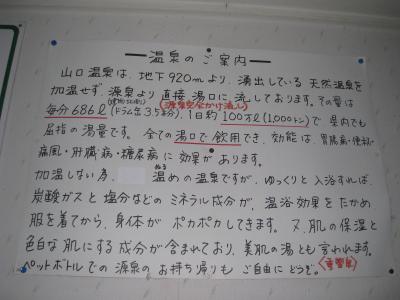 温泉のご案内
山口温泉は、地下920mより、湧出している天然温泉を
加温せず、源泉より直接湯口に流しております。その量は
(源泉完全かけ流し)
毎分686ℓ(ドラム缶3.5杯分)、1日約100万ℓ(1,000トン)で県内でも
屈指の湯量です。全ての湯口で飲用でき、効能は、胃腸病・便秘・
痛風・肝臓病・糖尿病に効果があります。
加温しない為、温め(ぬる)の温泉ですが、ゆっくりと入浴すれば、
炭酸ガスと塩分などのミネラル成分が、温浴効果をたかめ
服を着てから、身体がポカポカしてきます。又、肌の保湿と
色白な肌にする成分が含まれており、美肌の湯とも言われます。
ペットボトルでの源泉のお持ち帰りもご自由にどうぞ。(重曹泉)